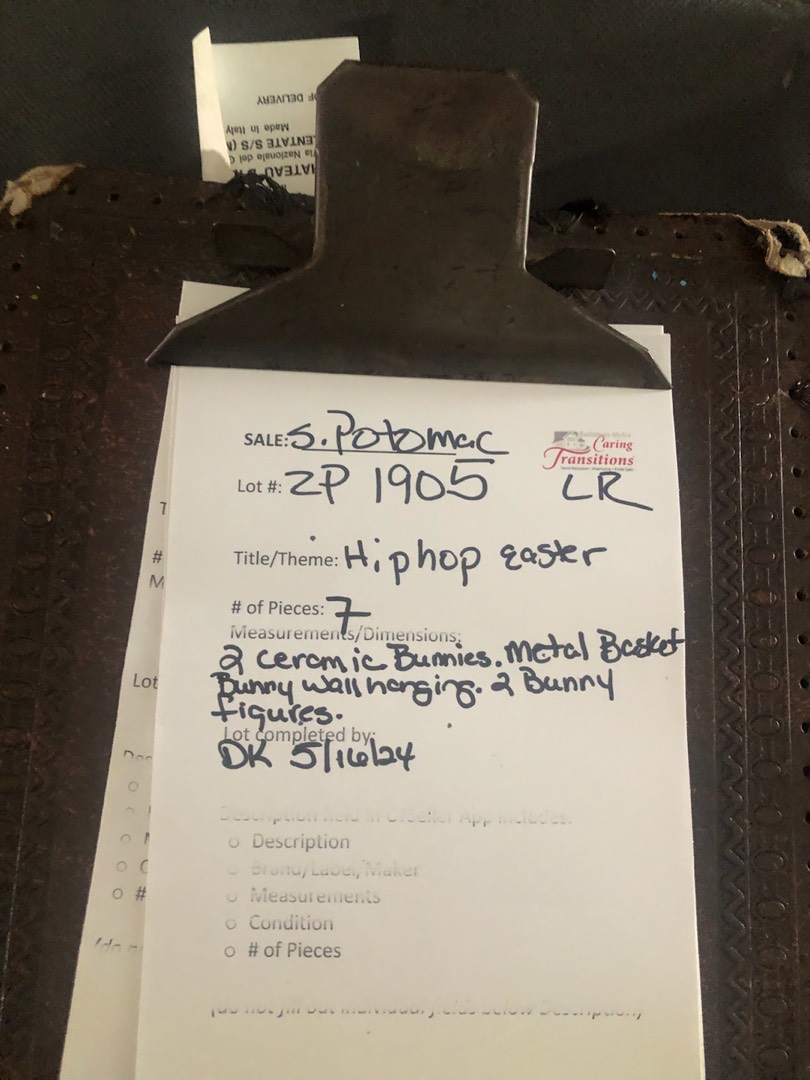 OF DELIVERY
Made in Italy
SALE: S. Potomac
Caring
Transitions
Lot #: ZP 1905 LR
Title/Theme: Hiphop easter
# of Pieces: 7
Measurements/Dimensions:
2 ceramic Bunnies. Metal Basket
Bunny wall hanging. 2 Bunny
figures.
Lot completed by:
DK 5/16/24
Description field in CTSeller App includes:
o Description
o Brand/Label/Maker
o Measurements
o Condition
o # of Pieces
(do not fill out individual fields below Description)
Lot